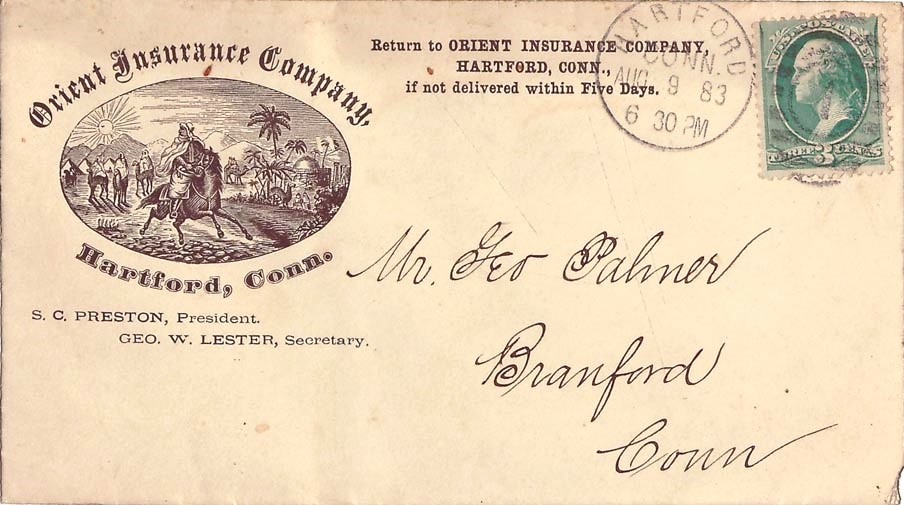 Orient Insurance Company,
Hartford, Conn.
S. C. PRESTON, President.
GEO. W. LESTER, Secretary.
Return to ORIENT INSURANCE COMPANY,
HARTFORD, CONN.,
if not delivered within Five Days.
HARTFORD
CONN.
AUG 9 83
6 30 PM
U.S. POSTAGE
THREE 3 CENTS
Mr. Geo Palmer
Branford
Conn